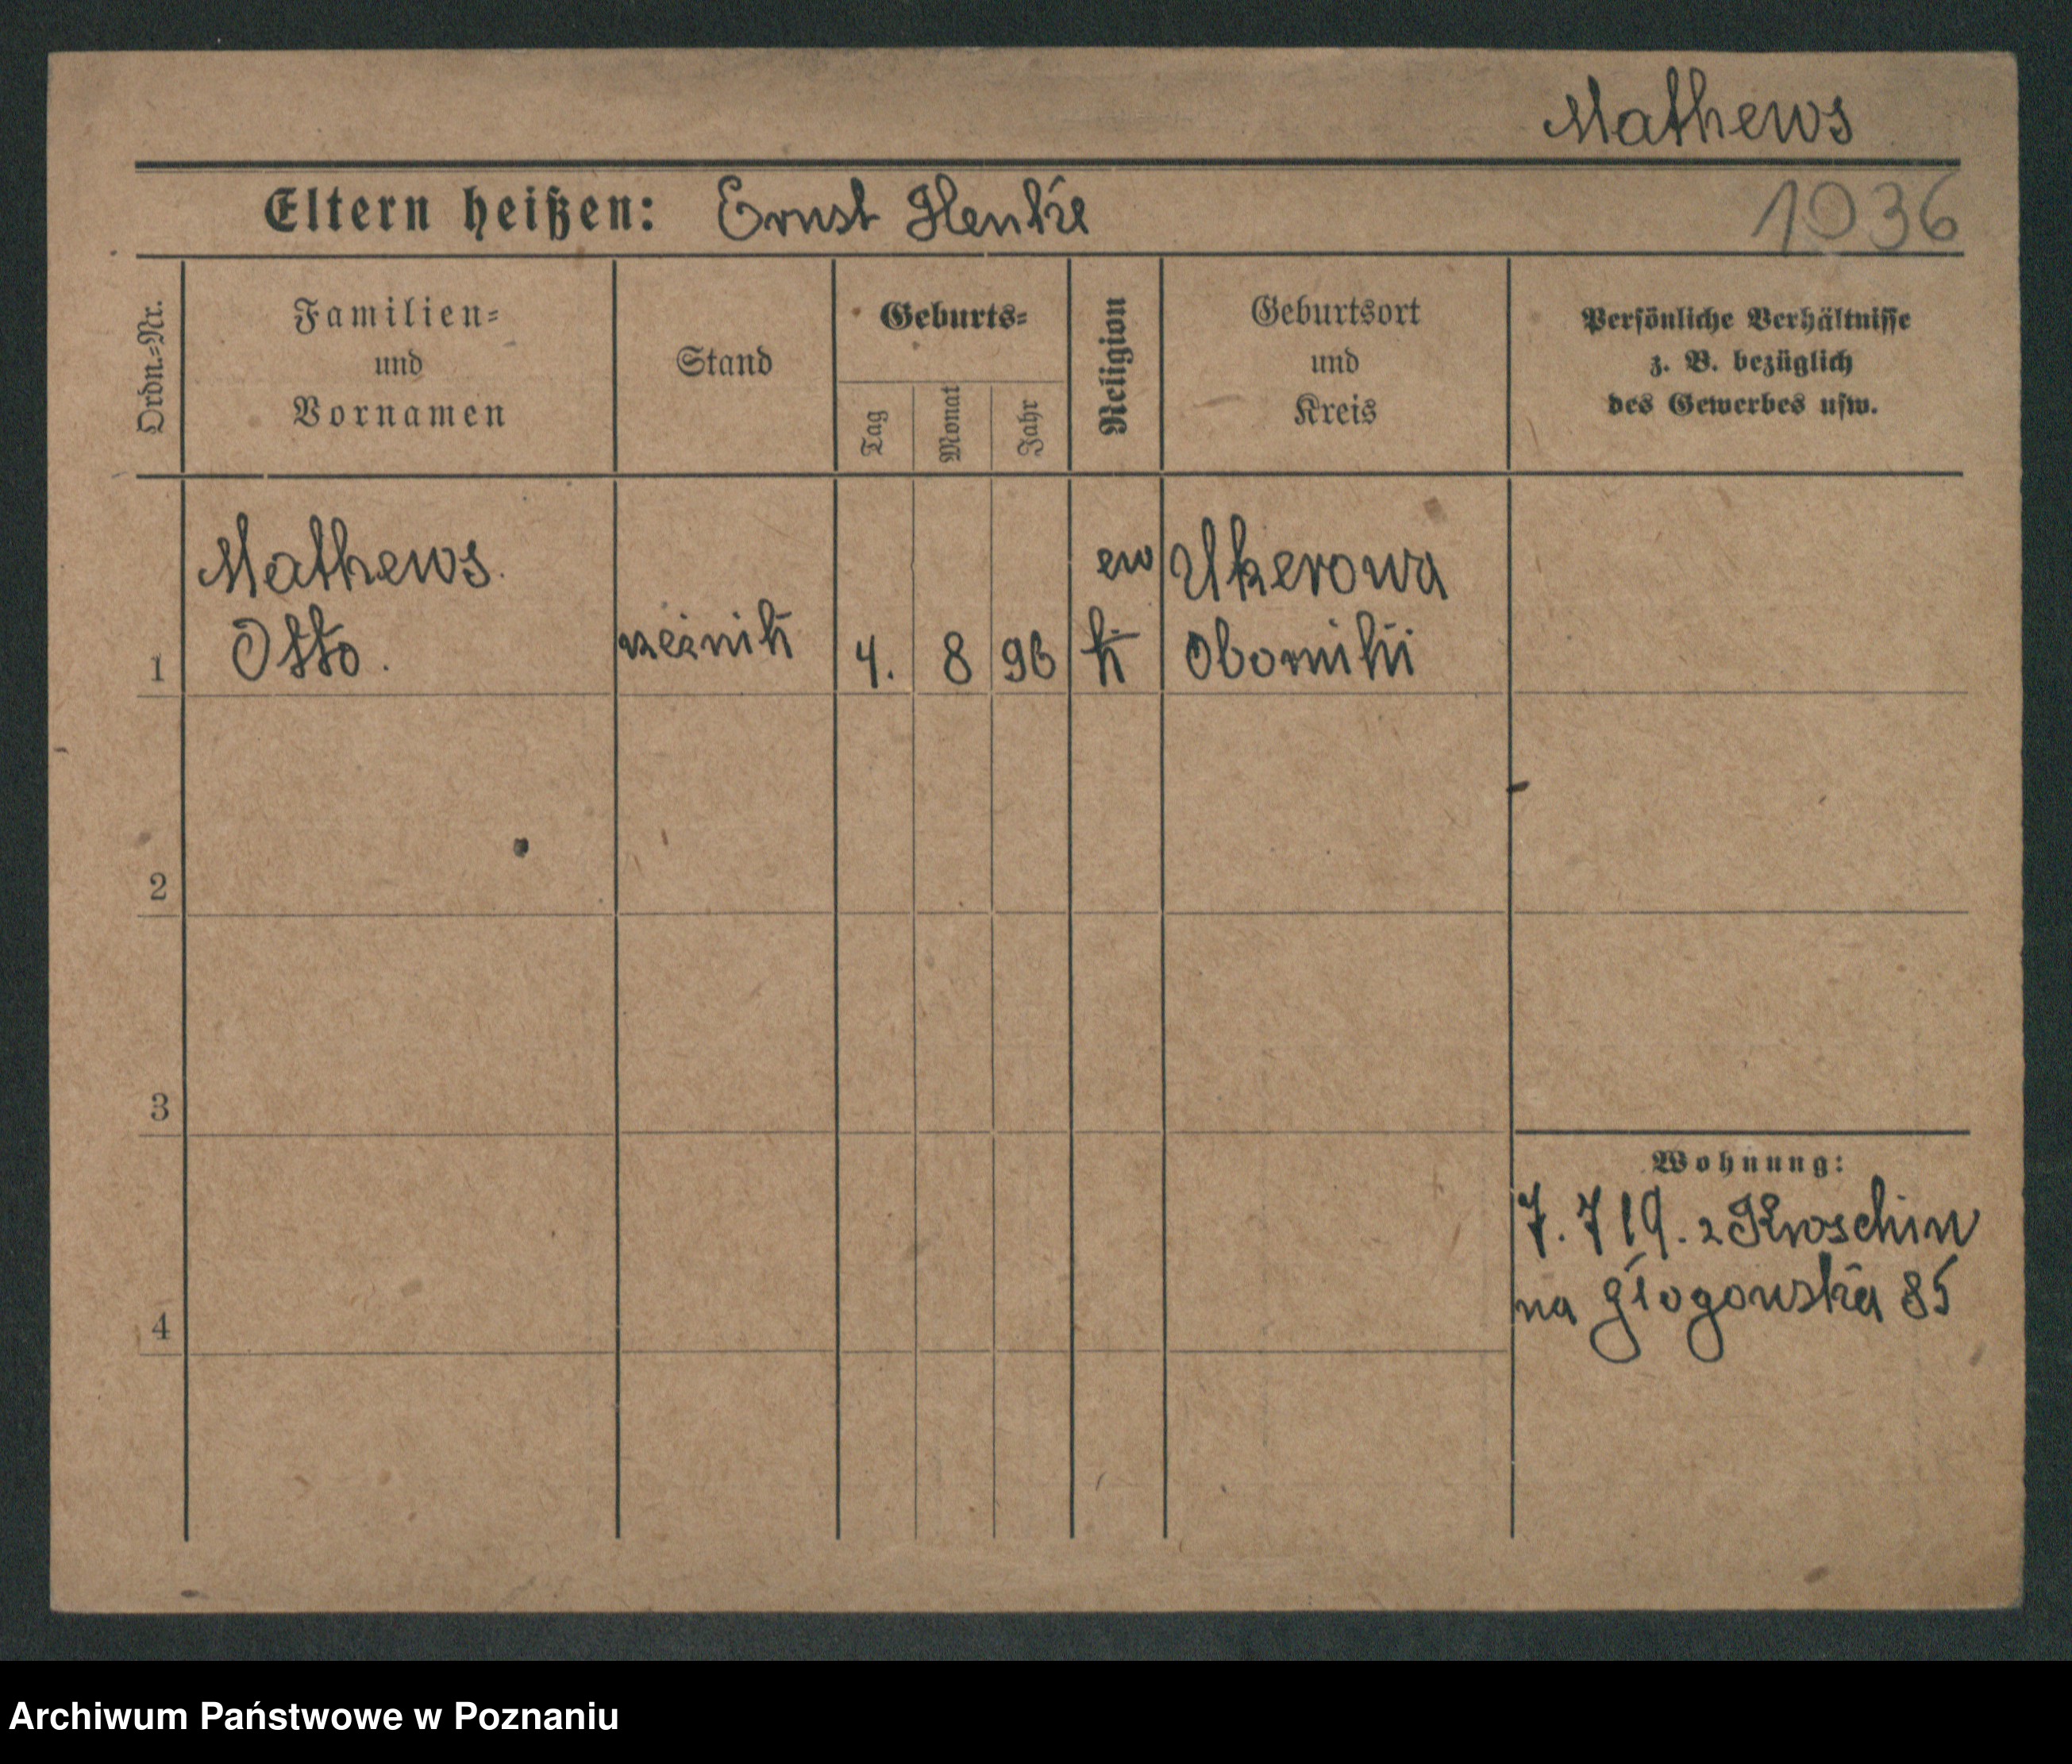 Mathews
Eltern heißen: Ernst Henke
1036
Ordn.=Nr.
Familien=
und
Vornamen
Stand
Geburts=
Tag
Monat
Jahr
Religion
Geburtsort
und
Kreis
Persönliche Verhältnisse
z. B. bezüglich
des Gewerbes usw.
Mathews.
Otto.
4. 8 96
ew
k
Ukerowa
Oborniki
1
2
3
4
Wohnung:
7. 7 19. z Kroschin
na głogowska 85
Archiwum Państwowe w Poznaniu